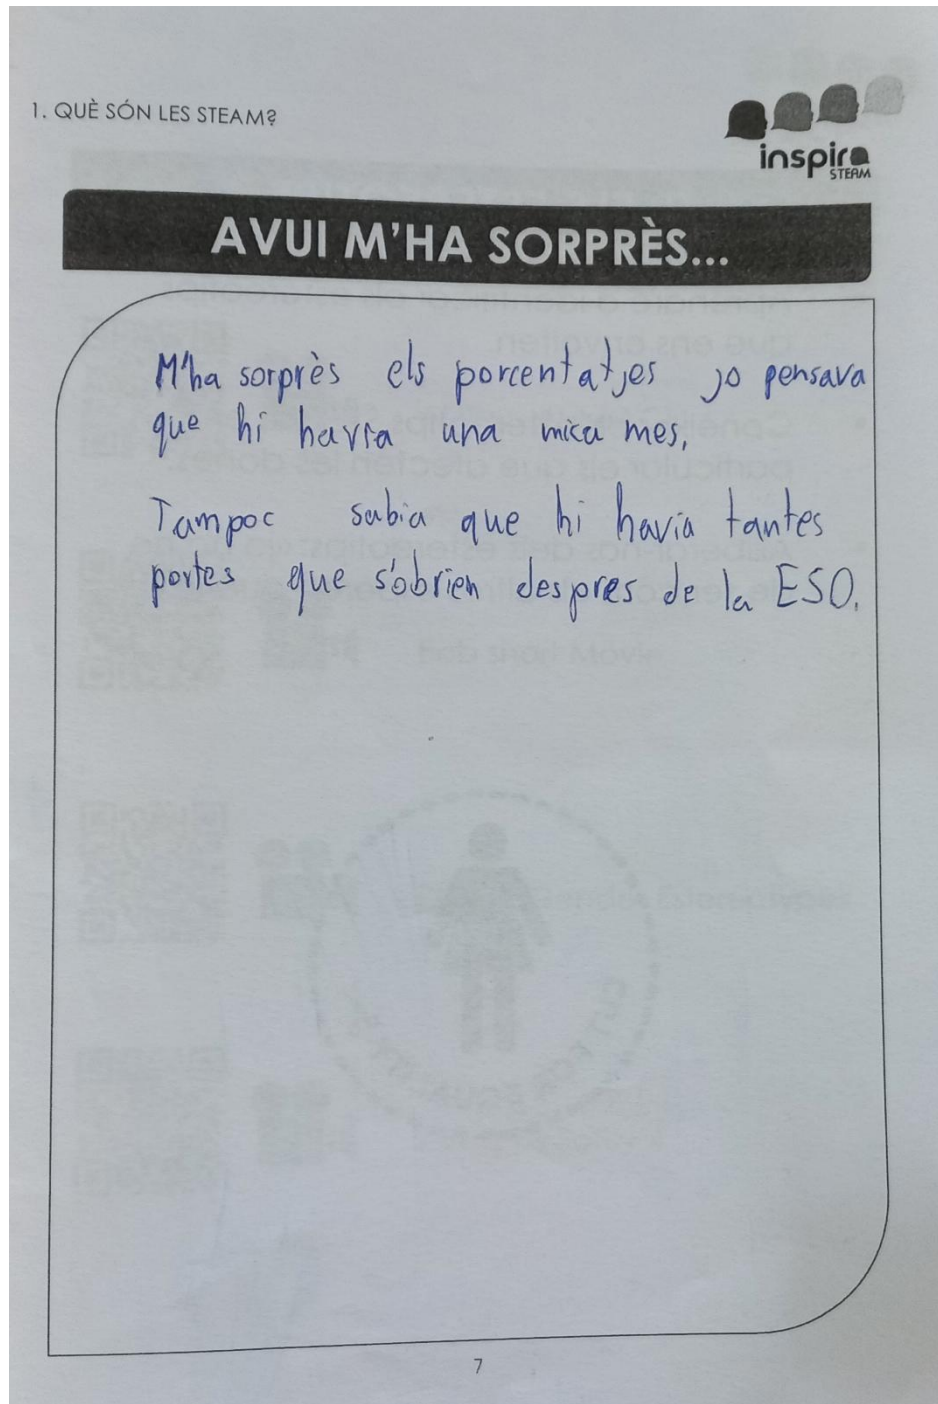 1. QUÈ SÓN LES STEAM?
inspira
STEAM
AVUI M'HA SORPRÈS...
M'ha sorprès els porcentatjes jo pensava
que hi havria una mica mes,
Tampoc sabia que hi havia tantes
portes que s'obrien despres de la ESO.
7